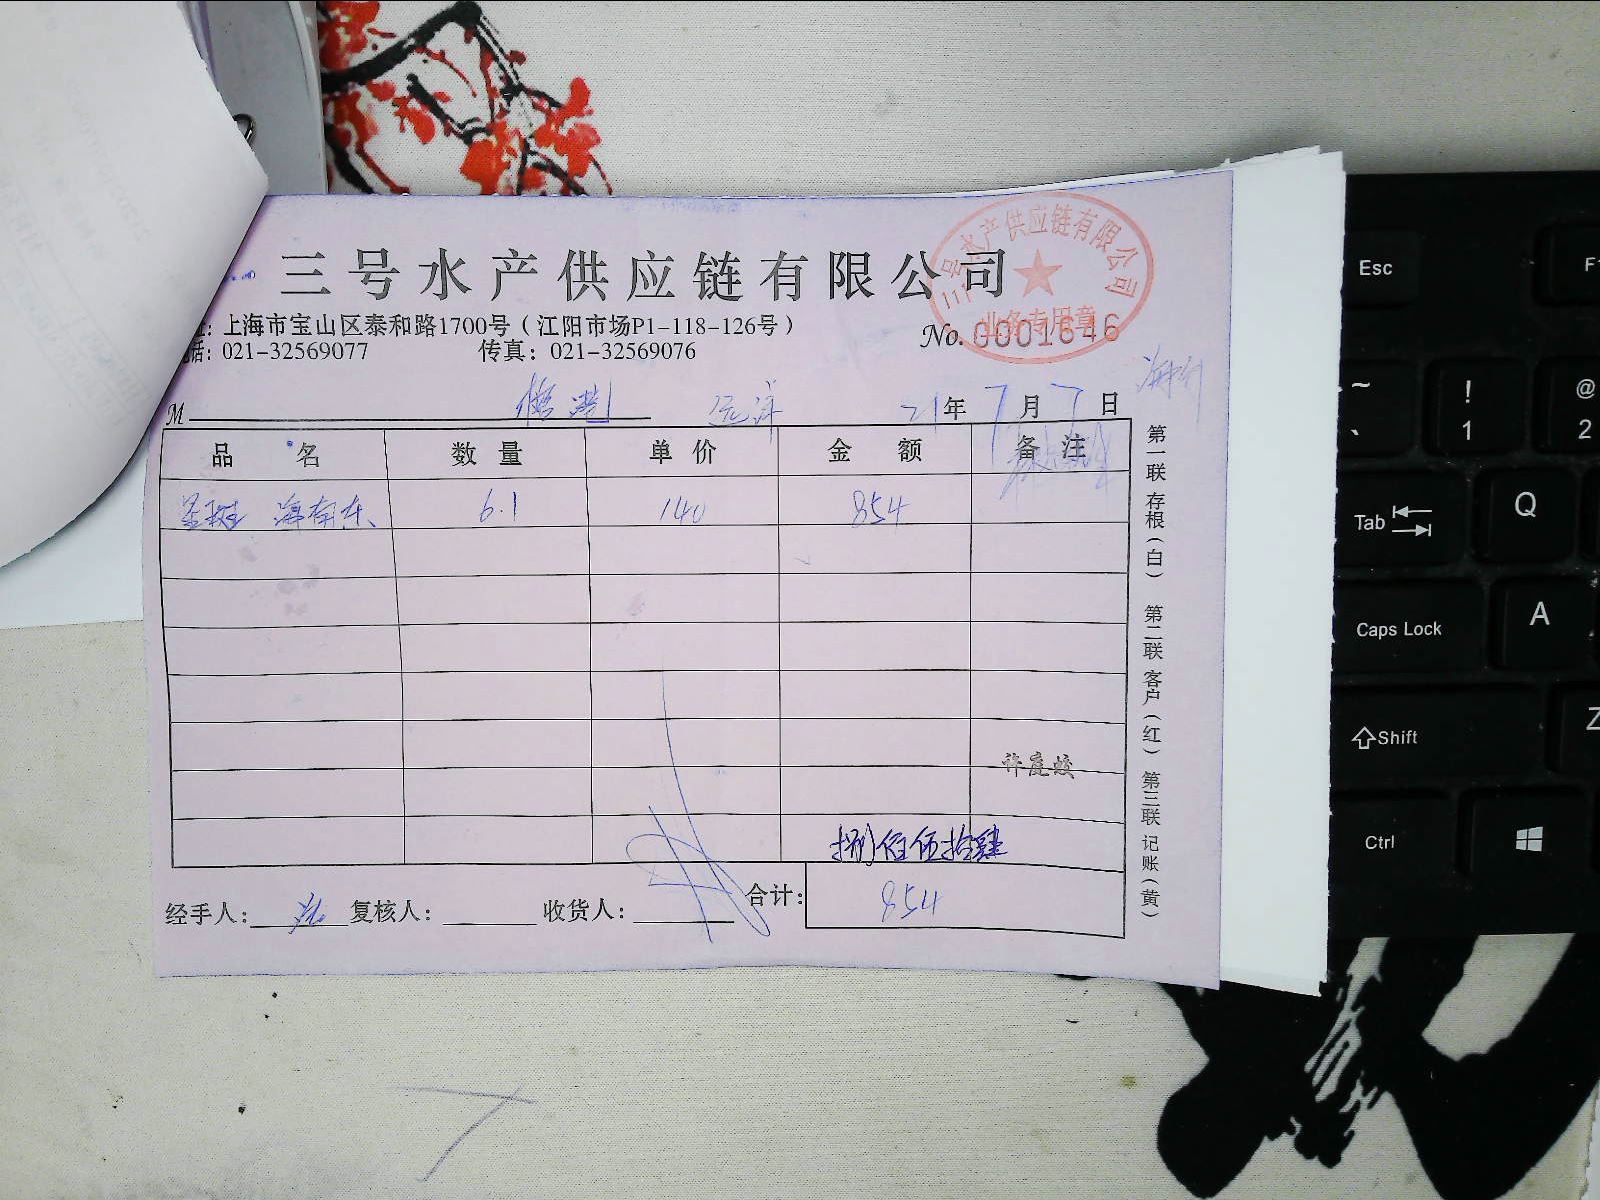 三号水产供应链有限公司
三号水产供应链有限公司
业务专用章
址: 上海市宝山区泰和路1700号（江阳市场P1-118-126号）
话: 021-32569077 传真: 021-32569076
No. 0001646
M 21年7月7日
品名 数量 单价 金额 备注
海南东 6.1 140 854
许庭蛟
捌佰伍拾肆
合计: 854
经手人: 复核人: 收货人:
第一联 存根（白） 第二联 客户（红） 第三联 记账（黄）
Esc
F1
~ ` ! 1 @ 2
Tab Q
Caps Lock A
Shift Z
Ctrl